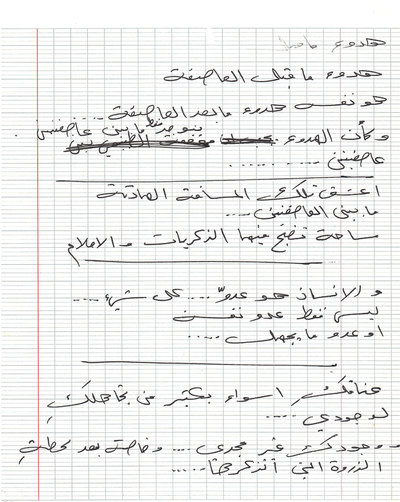 هدوء ما قبل
هدوء ما قبل العاصفة
هو نفسه هدوء ما بعد العاصفة ....
وكأن الهدوء يتوحد فقط ما بين عاصفتين .
عاصفتين .........
اعشق تلك المسافة الصادقة
ما بين العاصفتين ....
ساحة تضج فيها الذكريات والاحلام
والانسان هو عدوّ .... كل شيء ....
ليس فقط عدو نفسه
او عدو ما يجهل .....
عناقكِ اسواء بكثير من تجاهلكِ
لوجودي ....
ووجودك غير مجدي .... وخاصة بعد لحظة
الذروة التي .....